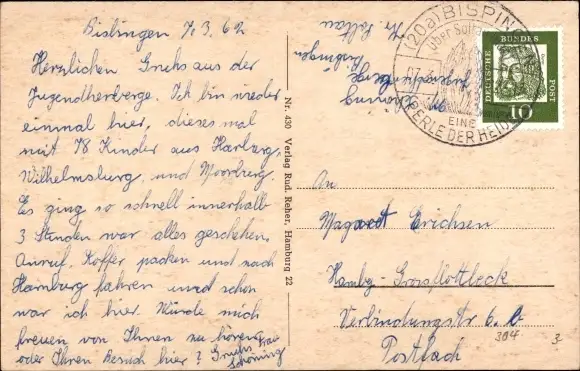 Bislingen 7.3.62
Herzlichen Gruß aus der
Jugendherberge. Ich bin wieder
einmal hier, dieses mal
mit 78 Kinder aus Harburg,
Wilhelmsburg und Moorburg.
Es ging so schnell innerhalb
3 Stunden war alles geschehen.
Anruf, Koffer packen und nach
Hamburg fahren und schon
war ich hier. Würde mich
freuen von Ihnen zu hören
oder Ihren Besuch hier? Gruß Frau
Schöning
Nr. 430 Verlag Rud. Reher, Hamburg 22
(20a) BISPIN
über Solta
EINE
PERLE DER HEID
DEUTSCHE BUNDES POST
10
Schöning
Jugendherberge
Bislingen
Kr. Soltau
An
Magaret Erichsen
Hambg-Grossflottbeck
Verbindungstr 6. b
Postbach
304
3